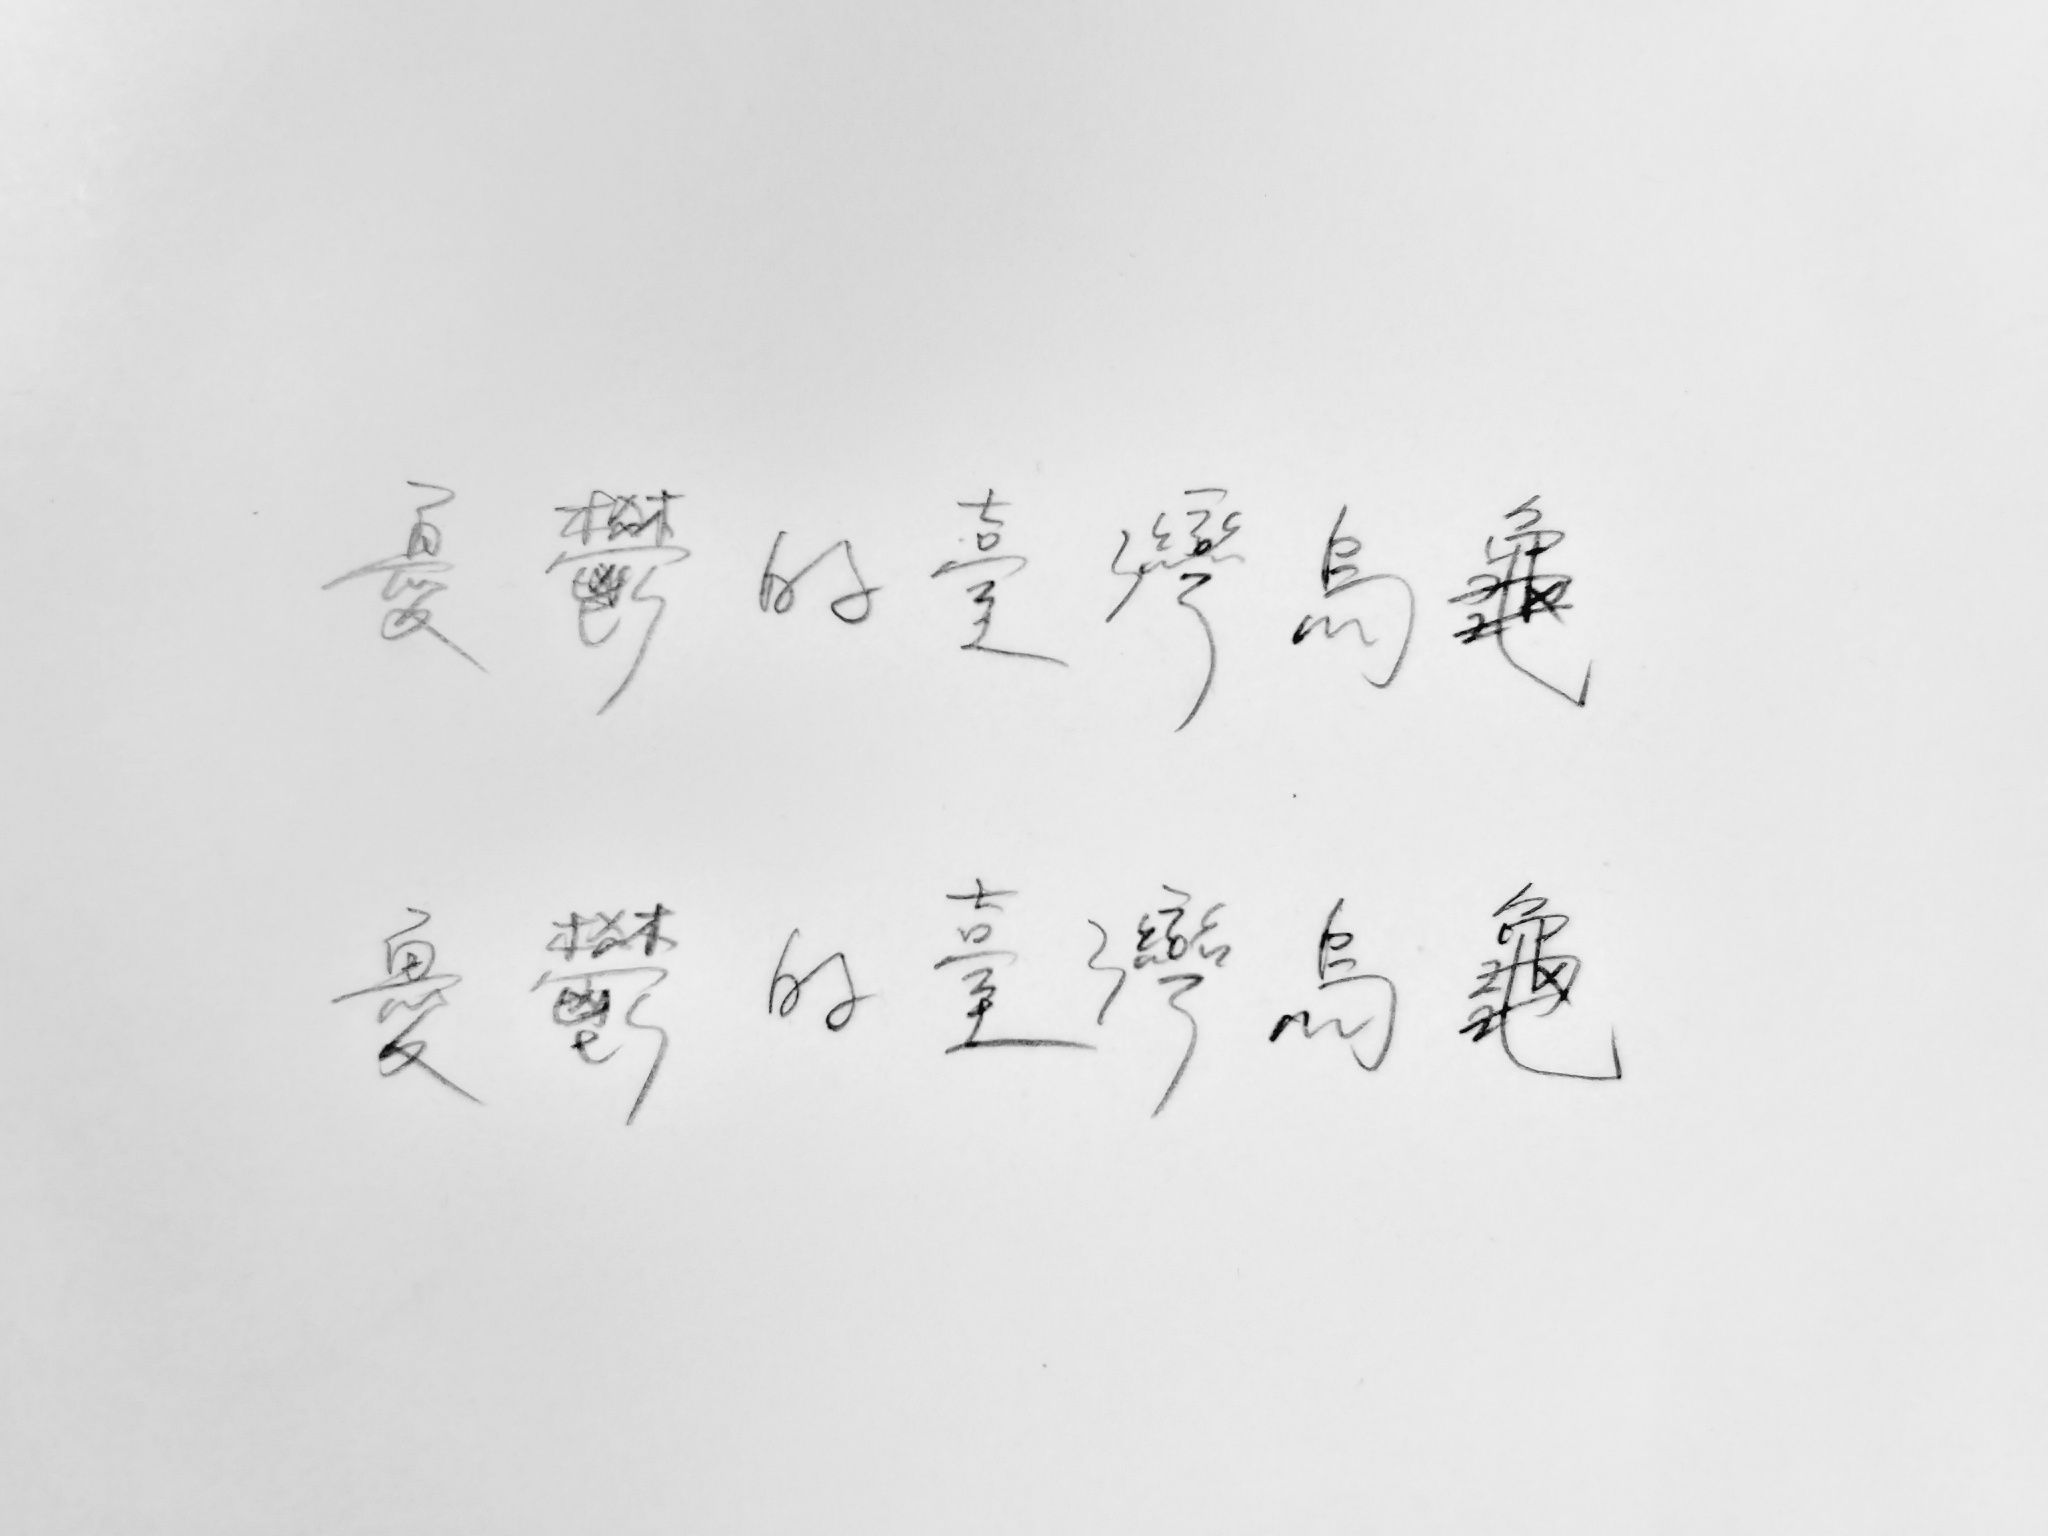 憂鬱的臺灣烏龜
憂鬱的臺灣烏龜